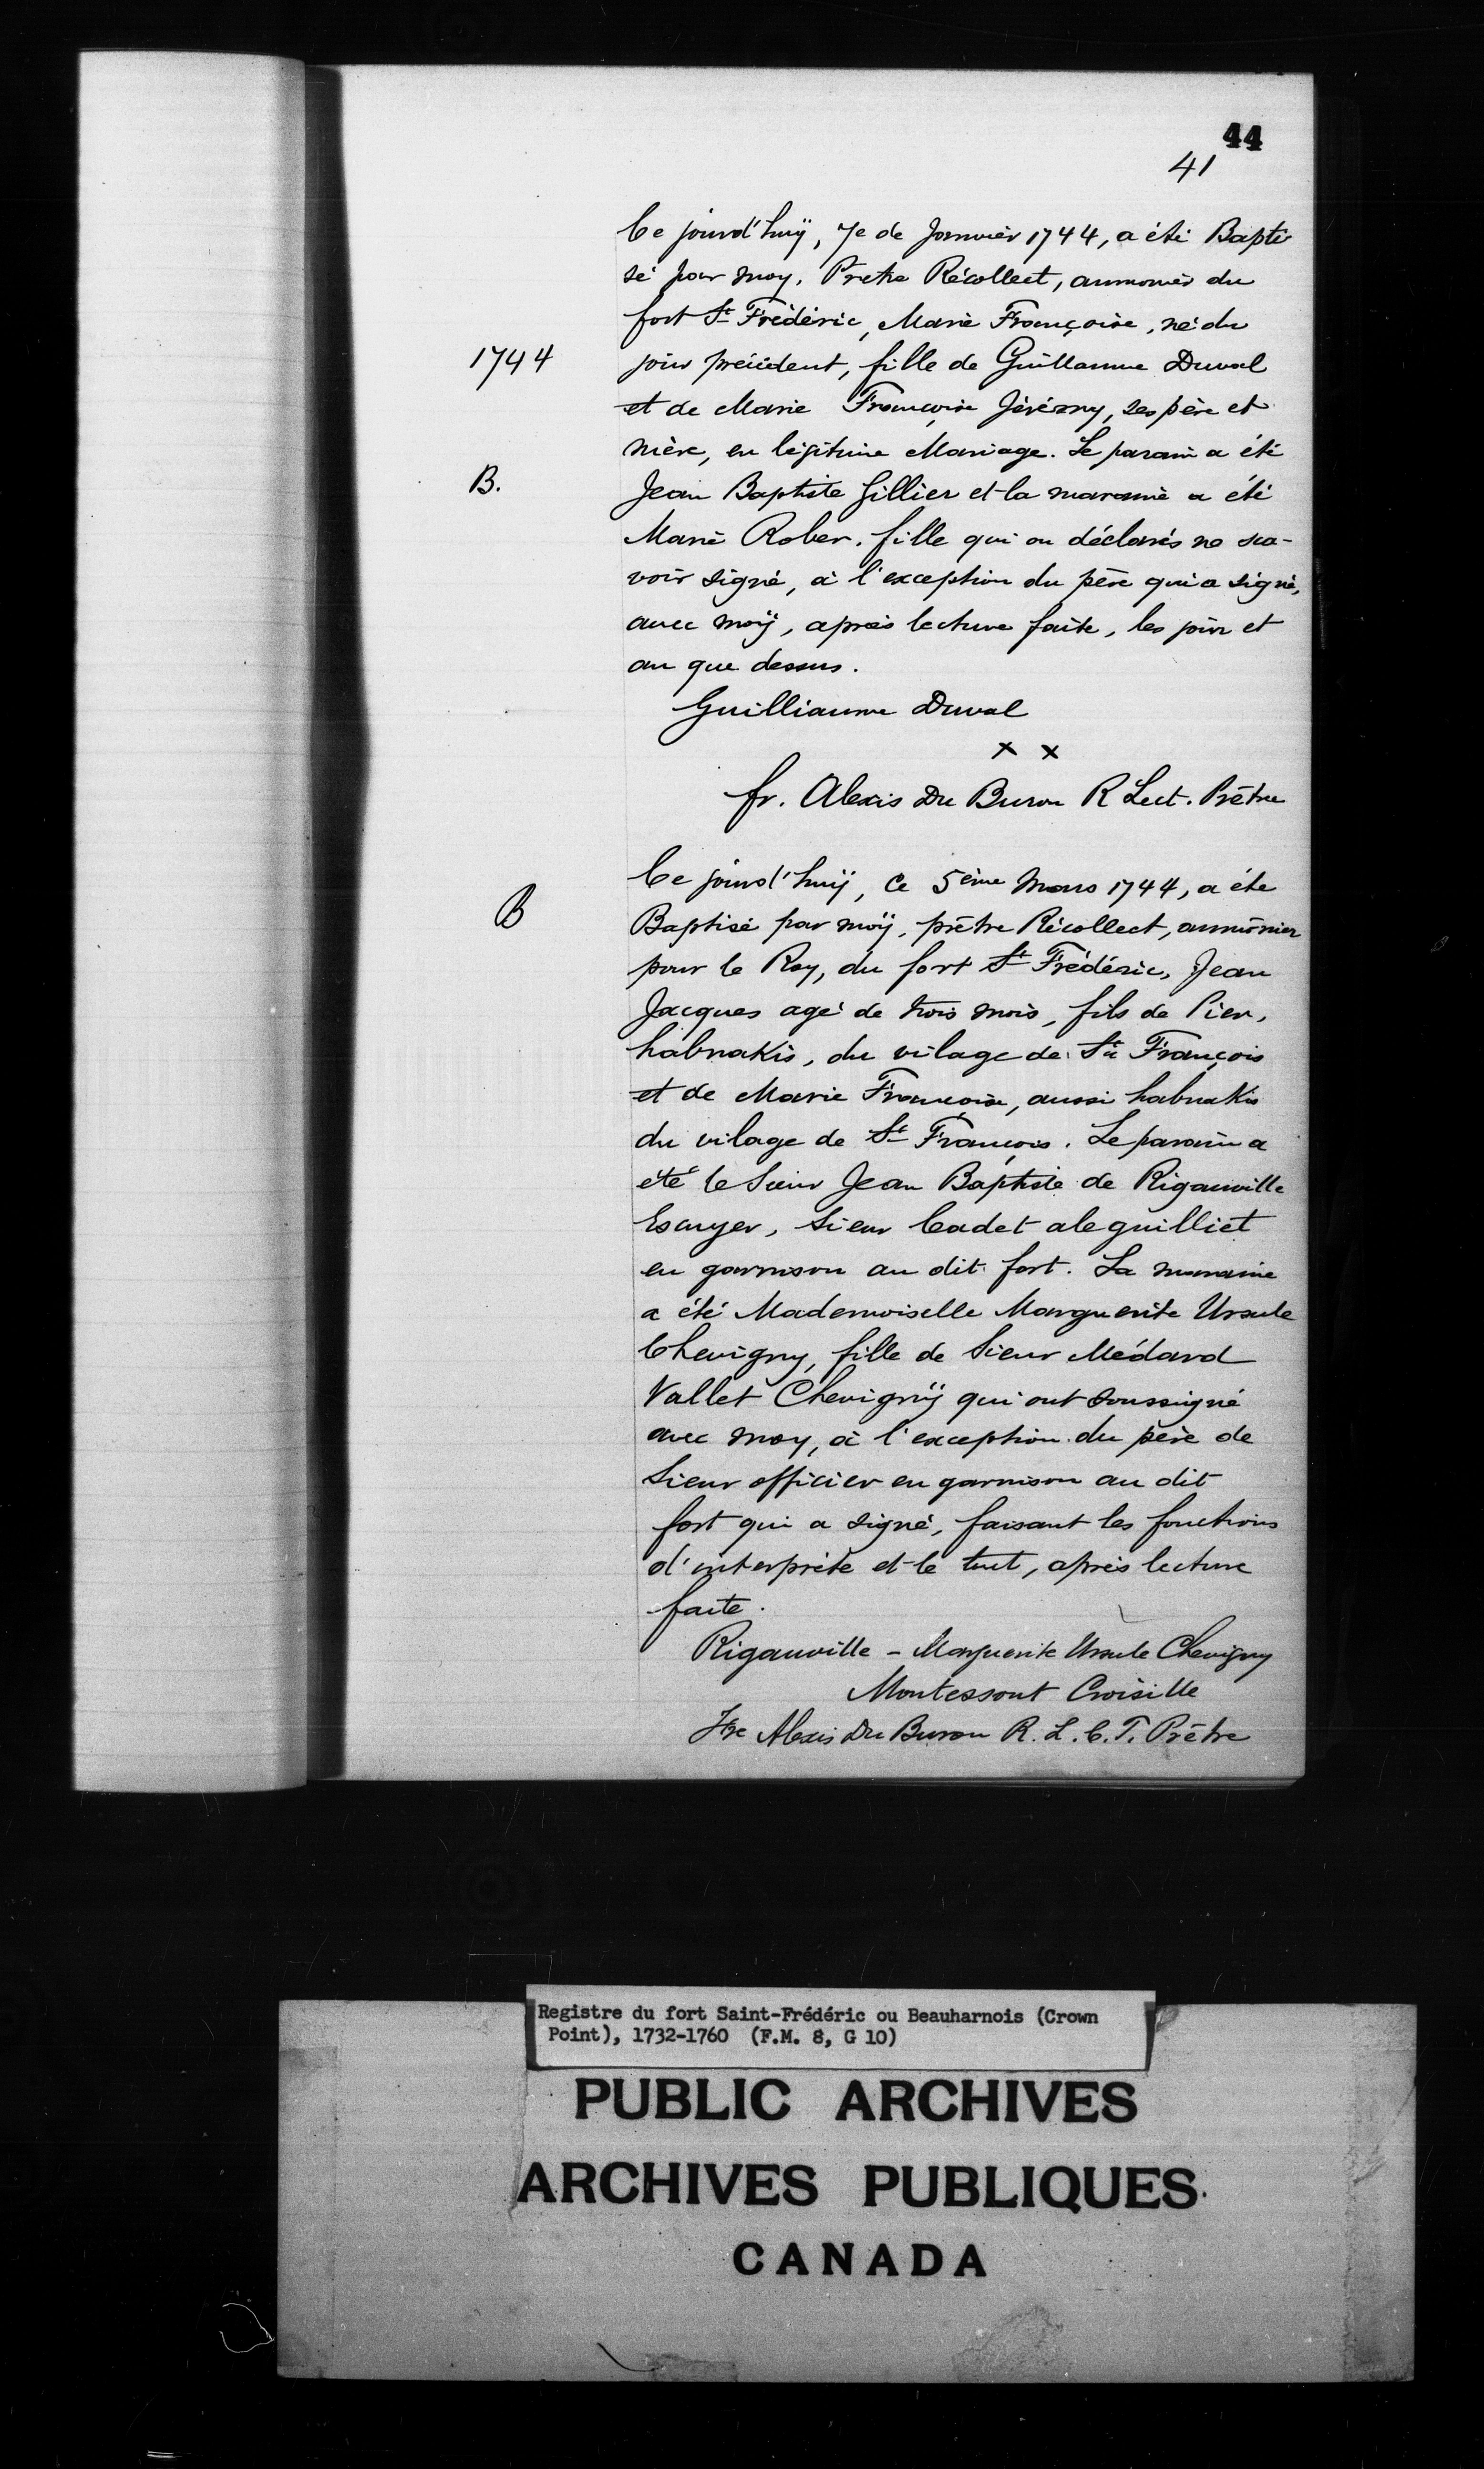 44
41
Ce jourd'huÿ, 7e de Janvier 1744, a été Bapti
sé par moy, Pretre Récollect, aumonier du
fort St Frédéric, Marie Françoise, né du
1744
jour précédent, fille de Guillaume Duval
et de Marie Françoise Jérémy, ses père et
mère, en légitime Mariage. Le parain a été
B.
Jean Baptiste Gillier et la maraine a été
Marie Rober, fille qui on déclarés ne sca-
voir signé, à l'exception du père qui a signé,
avec moÿ, après lecture faite, les jour et
an que dessus.
Guilliaume Duval
x x
fr. Alexis Du Buron R Lect. Prêtre
Ce jourd'huÿ, Ce 5ème Mars 1744, a éte
B
Baptisé par moÿ, prêtre Récollect, aumônier
pour le Roy, du fort St Frédéric, Jean
Jacques agé de trois mois, fils de Pier,
habnakis, du vilage de St François
et de Marie Françoise, aussi habnakis
du vilage de St François. Le parain a
été le Sieur Jean Baptiste de Rigauville
Escuyer, Sieur Cadet aleguilliet
en garnison au dit fort. La maraine
a été Mademoiselle Marguerite Ursule
Chevigny, fille de Sieur Médard
Vallet Chevignÿ qui ont soussigné
avec moy, à l'exception du père de
Sieur officier en garnison au dit
fort qui a signé, faisant les fonctions
d'interprète et le tout, après lecture
faite.
Rigauville - Marguerite Ursule Chevigny
Montessont Croisille
Fre Alexis Du Buron R. L. C. T. Prêtre
Registre du fort Saint-Frédéric ou Beauharnois (Crown
Point), 1732-1760 (F.M. 8, G 10)
PUBLIC ARCHIVES
ARCHIVES PUBLIQUES
CANADA